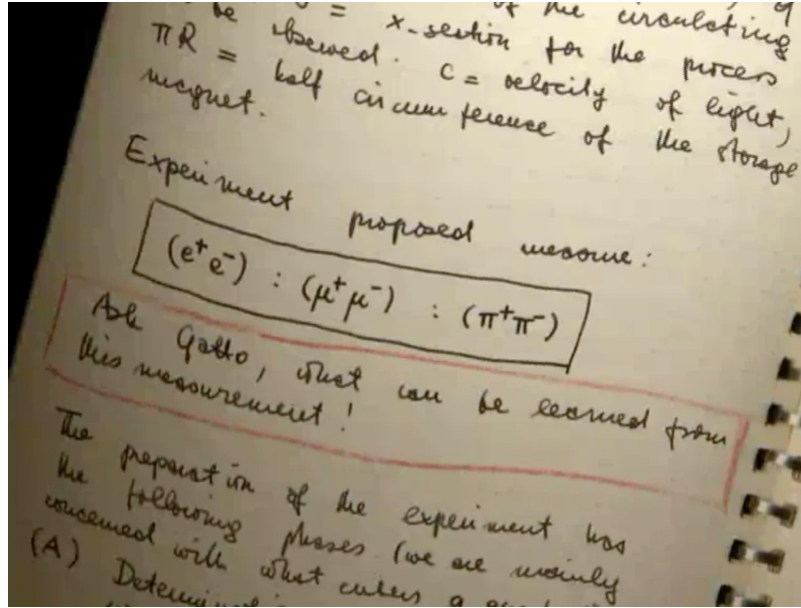 of the circulating
= x-section for the process
be observed. c = velocity of light,
πR = half circumference of the storage
magnet.
Experiment proposed measure:
(e⁺e⁻) : (μ⁺μ⁻) : (π⁺π⁻)
Ask Gatto, what can be learned from
this measurement!
The preparation of the experiment has
the following phases (we are mainly
concerned with what enters a
(A)